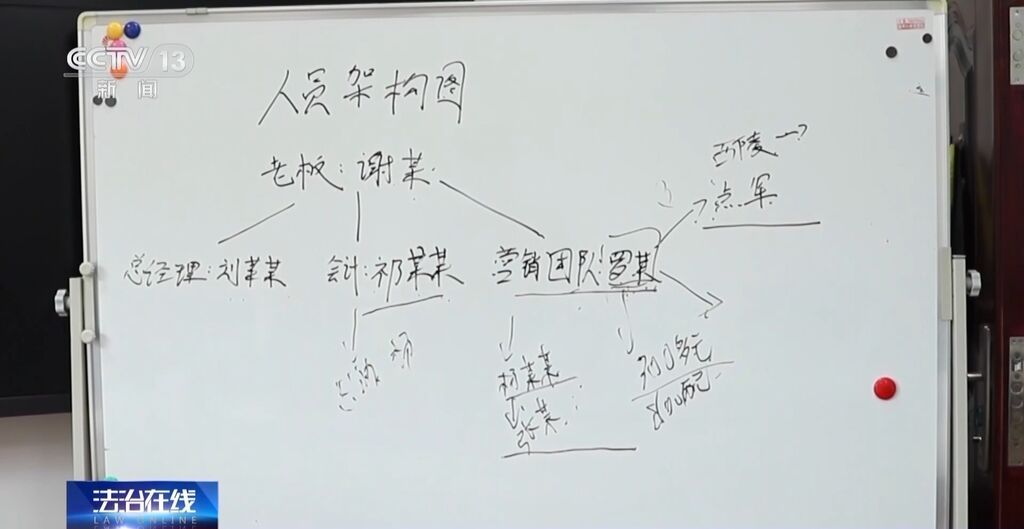 CCTV 13
新闻
人员架构图
老板：谢某
西陵
点军
总经理：刘某某
会计：祁某某
营销团队：罗某
杨某某
张某
法治在线
LAW ONLINE